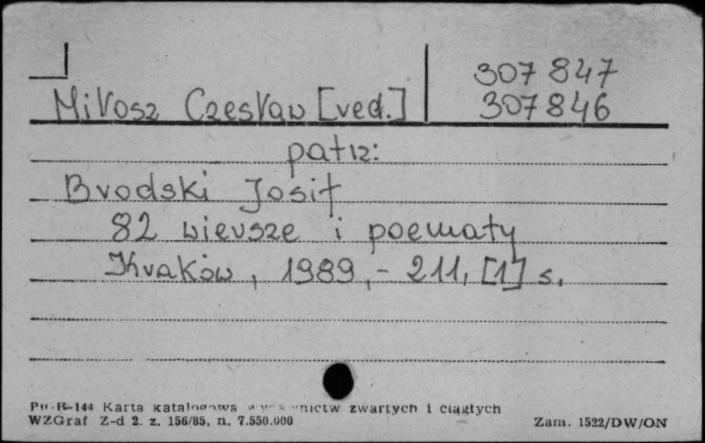 307 847
Miłosz Czesław [red.] 307 846
patrz:
Brodski Josif
82 wiersze i poematy
Kraków, 1989, - 211, [1] s.
Pu-B-144 Karta katalogowa wydawnictw zwartych i ciągłych
WZGraf Z-d 2. z. 156/85, n. 7.550.000 Zam. 1522/DW/ON